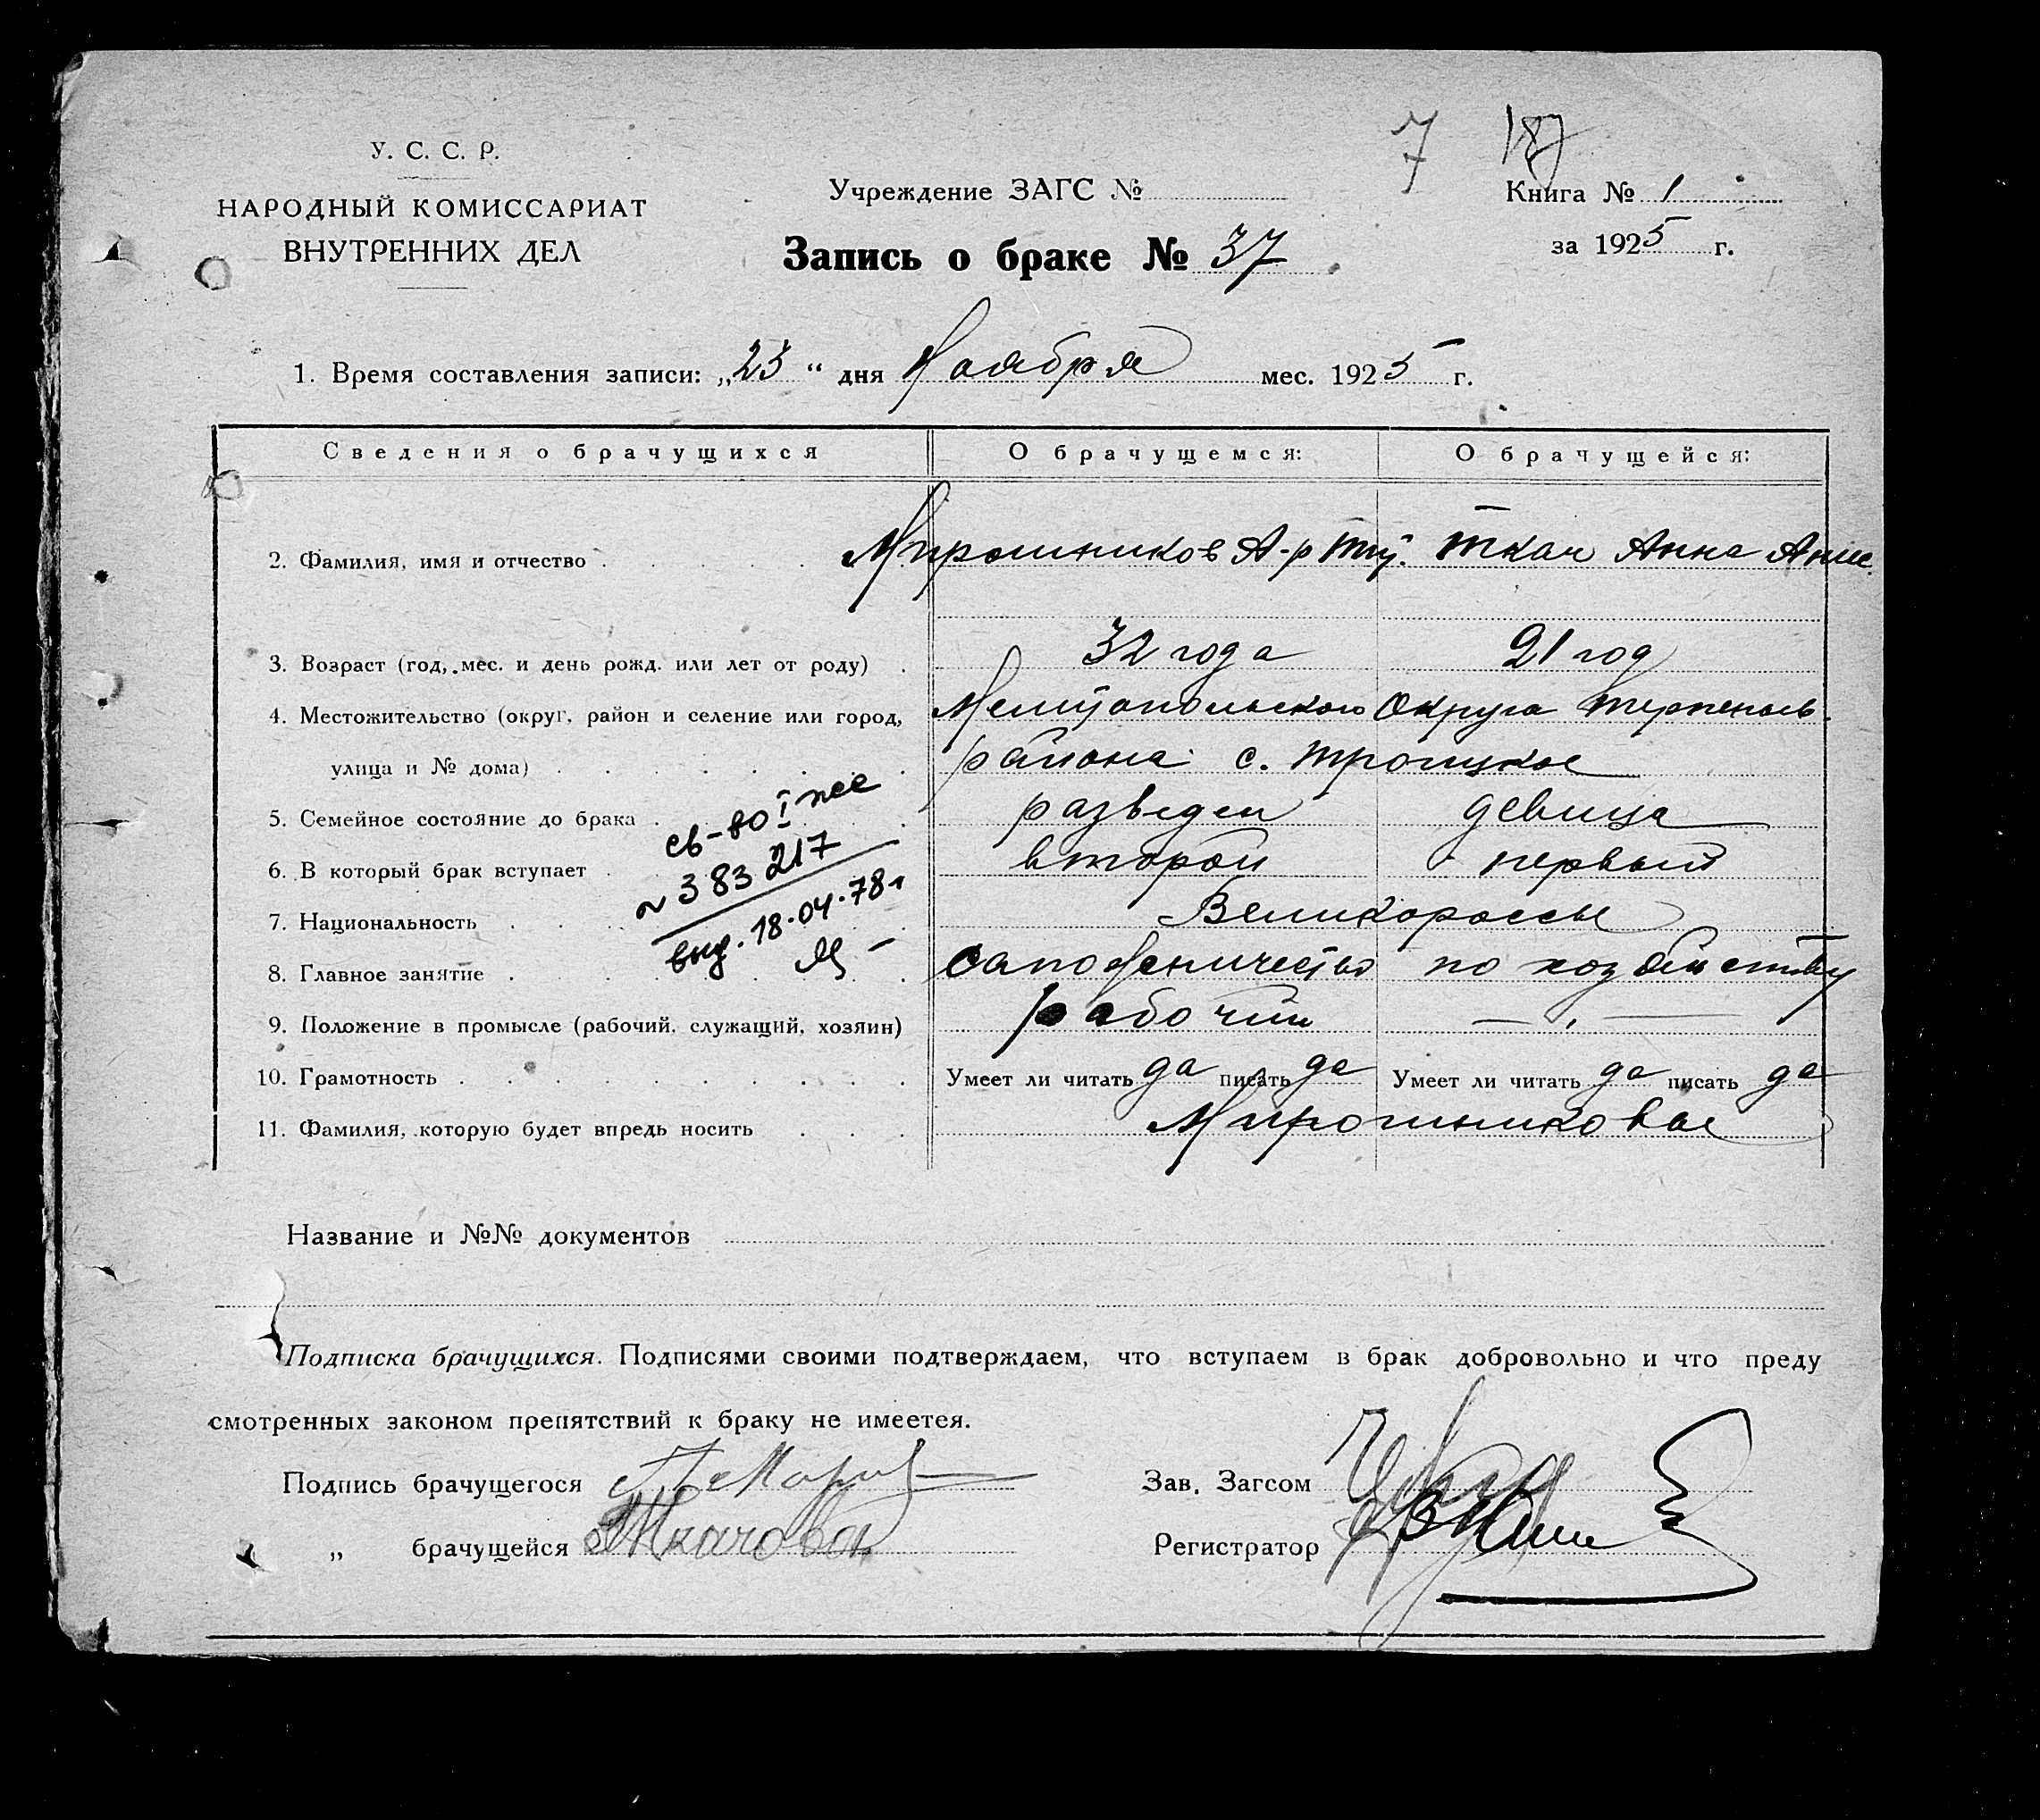 7 187
У. С. С. Р.
НАРОДНЫЙ КОМИССАРИАТ
ВНУТРЕННИХ ДЕЛ
Учреждение ЗАГС №
Запись о браке № 37
Книга № 1
за 1925 г.
1. Время составления записи: „23“ дня Ноября мес. 1925 г.
Сведения о брачущихся О брачущемся: О брачущейся:
2. Фамилия, имя и отчество Мирошников А-р Ткач Анна
3. Возраст (год, мес. и день рожд. или лет от роду) 32 года 21 год
4. Местожительство (округ, район и селение или город, Мелитопольского Округа Терпеньев.
улица и № дома) района с. Троицкое
5. Семейное состояние до брака разведен девица
6. В который брак вступает второй первый
7. Национальность Великороссы
8. Главное занятие сапожничество по хозяйству
9. Положение в промысле (рабочий, служащий, хозяин) рабочий — „ —
10. Грамотность Умеет ли читать да писать да Умеет ли читать да писать да
11. Фамилия, которую будет впредь носить Мирошниковы
св-во I же
~ 383217
выд. 18.04.78г
Название и №№ документов
Подписка брачущихся. Подписями своими подтверждаем, что вступаем в брак добровольно и что преду
смотренных законом препятствий к браку не имеетея.
Подпись брачущегося
Зав. Загсом
„ брачущейся Ткачова
Регистратор